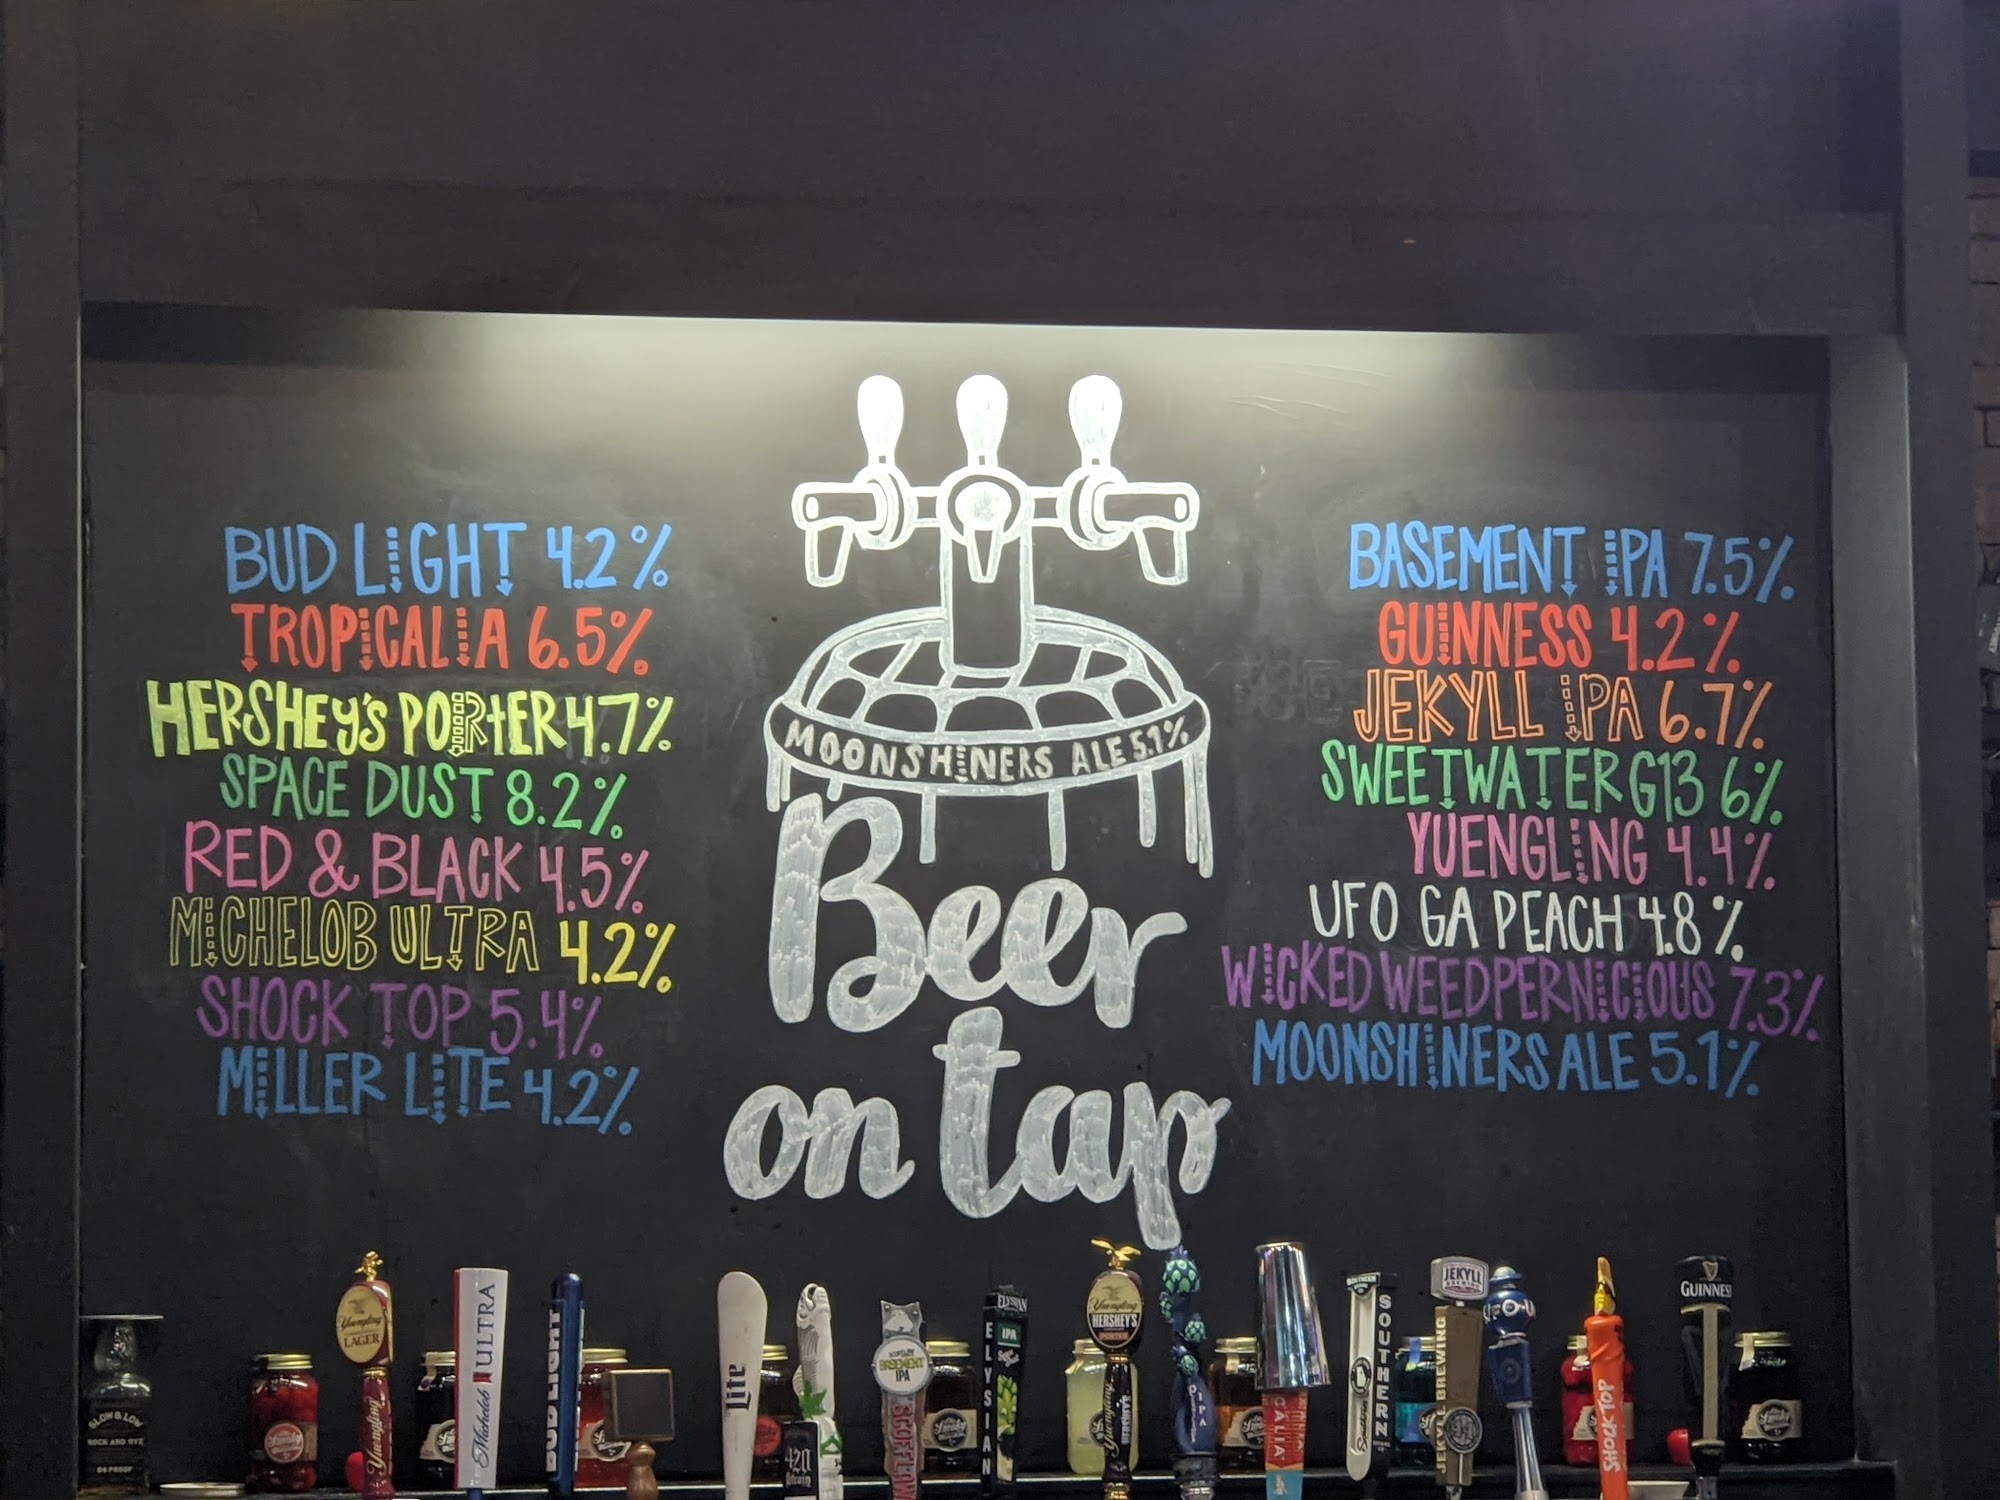 BUD LIGHT 4.2%
TROPICALIA 6.5%
HERSHEY'S PORTER 4.7%
SPACE DUST 8.2%
RED & BLACK 4.5%
MICHELOB ULTRA 4.2%
SHOCK TOP 5.4%
MILLER LITE 4.2%
MOONSHINERS ALE 5.1%
Beer
on tap
BASEMENT IPA 7.5%
GUINNESS 4.2%
JEKYLL IPA 6.7%
SWEETWATER G13 6%
YUENGLING 4.4%
UFO GA PEACH 4.8%
WICKED WEED PERNICIOUS 7.3%
MOONSHINERS ALE 5.1%
SLOW & LOW
ROCK AND RYE
84 PROOF
Yuengling
LAGER
Yuengling
Michelob ULTRA
BUD LIGHT
Lite
420
Strain
BASEMENT
IPA
SCOFFLAW
ELYSIAN
IPA
ELYSIAN
Yuengling
HERSHEY'S
PORTER
IPA
SOUTHERN
JEKYLL
BREWING
JEKYLL BREWING
UFO
SHOCK TOP
GUINNESS